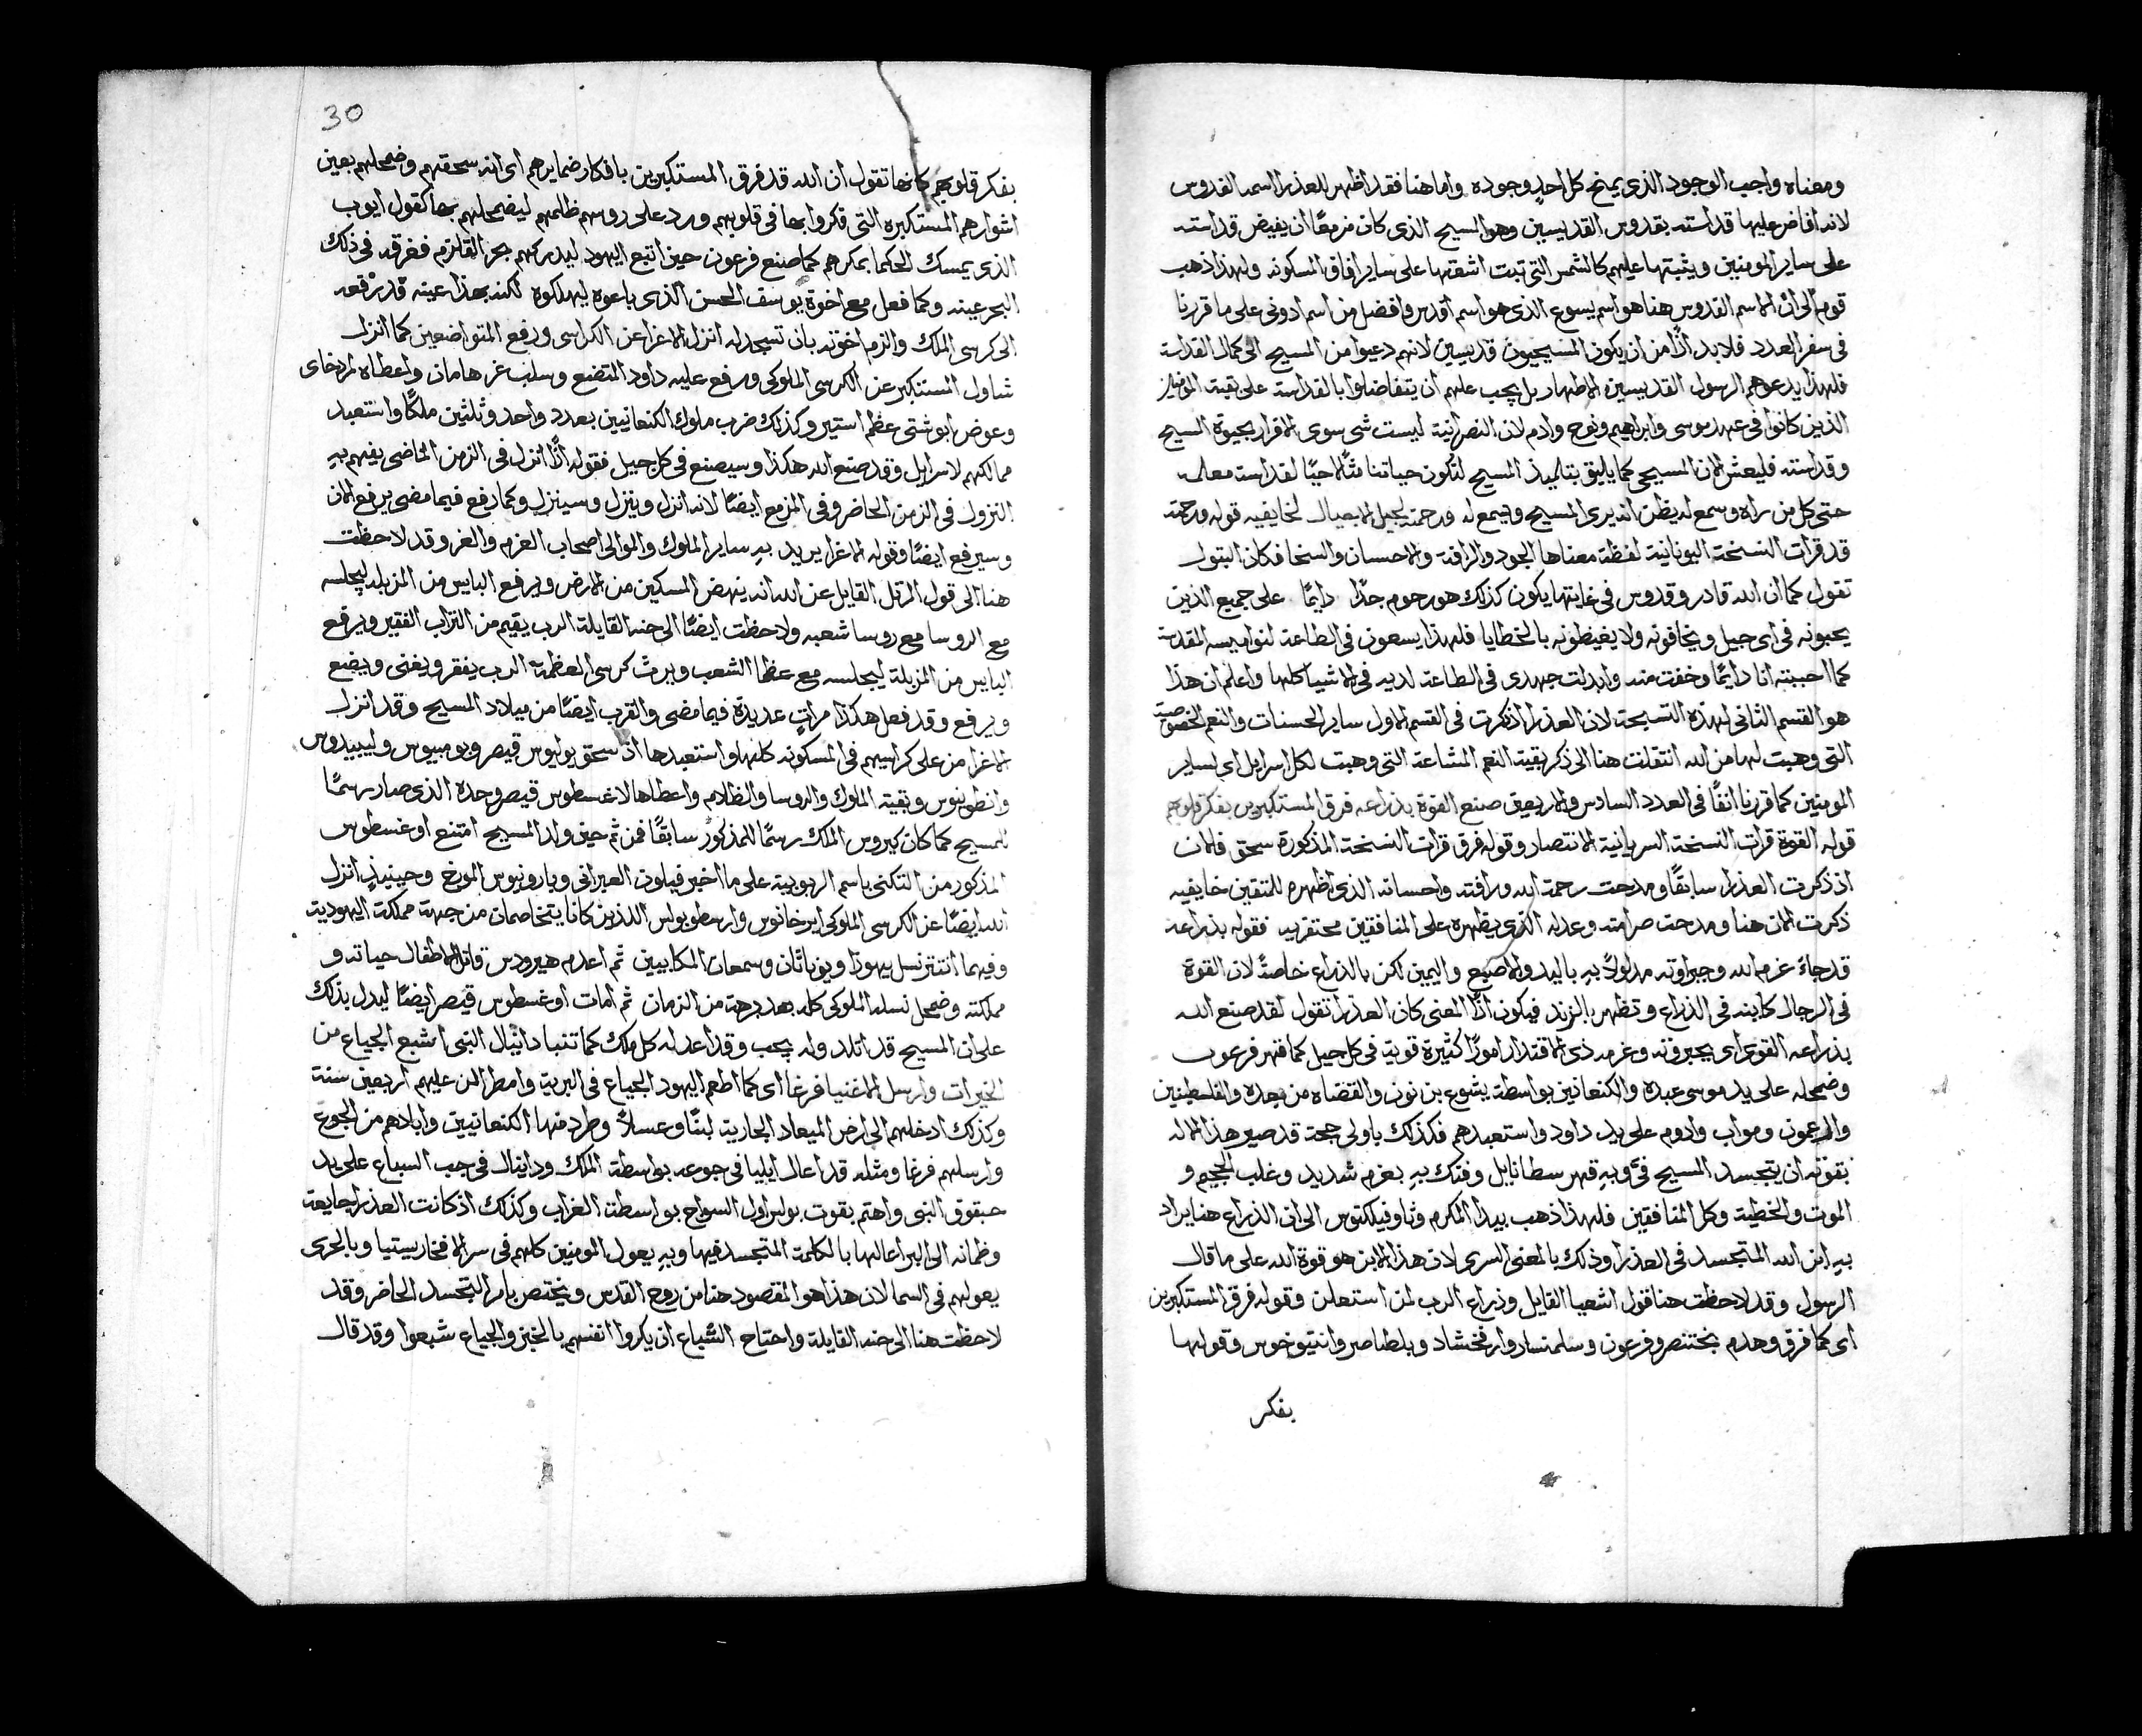 ومعناه واجب الوجود الذى يمنح كل احدٍ وجوده واما هنا فقد اظهر للعذرا اسمه القدوس
لانه افاض عليها قداسته بقدوس القديسين وهو المسيح الذى كان مزمعًا ان يفيض قداسته
على ساير المومنين ويثبتها عليهم كالشمس التى تبت اشعتها على ساير افاق المسكونه ولهذا ذهب
قوم الى ان الاسم القدوس هنا هو اسم يسوع الذى هو اسم اقدس وافضل من اسم ادونى على ما قررنا
فى سفر العدد فلا بد اذًا من ان يكون المسيحيون قديسين لانهم دعيوا من المسيح الى كمال القداسة
فلهذا يدعوهم الرسول القديسين الاطهار بل يجب عليهم ان يتفاضلوا بالقداسة على بقية المومنين
الذين كانوا فى عهد موسى وابراهيم ونوح وادم لان النصرانية ليست شى سوى الاقرار بحيوة المسيح
وقداسته فليعش الان المسيحى كما يليق بتلميذ المسيح لتكون حياتنا مثالًا حيًا لقداسة معلمه
حتى كل من راه وسمع له يظن انه يرى المسيح ويسمع له ورحمته لجيل الاجيال لخايفيه قوله ورحمته
قد قرات النسخة اليونانية لفظة معناها الجود والرافة والاحسان والسخا فكان البتول
تقول كما ان الله قادر وقدوس فى غايتها يكون كذلك هو رحوم جدًا دايمًا على جميع الذين
يحبونه فى اى جيل ويخافونه ولا يغيظونه بالخطايا فلهذا يسعون فى الطاعة لنواميسه المقدسة
كما احببته انا دايمًا وخفت منه وابدلت جهدى فى الطاعة لديه فى الاشيا كلها واعلم ان هذا
هو القسم الثانى لهذه التسبحة لان العذرا ذكرت فى القسم الاول ساير الحسنات والنعم الخصوصية
التى وهبت لها من الله انتقلت هنا الى ذكر بقية النعم المشاعة التى وهبت لكل اسرايل اى لساير
المومنين كما قررنا انفًا فى العدد السادس والاربعين صنع القوة بذراعه فرق المستكبرين بفكر قلوبهم
قوله القوة قرات النسخة السريانية الانتصار وقوله فرق قرات النسخة المذكورة سحق فلان
اذ ذكرت العذرا سابقًا ومدحت رحمة الله ورافته واحسانه الذى اظهره للمتقين خايفيه
ذكرت الان هنا ومدحت صرامته وعدله الذى يظهره على المنافقين محتقريه فقوله بذراعه
قد جاء عزم الله وجبروته مدلولًا بهِ باليد والاصبع واليمين لكن بالذراع خاصةً لان القوة
فى الرجال كاينه فى الذراع وتظهر بالزند فيكون اذًا المعنى كان العذرا تقول لقد صنع الله
بذراعه القوى اى بجبروته وعزمه ذى الاقتدار امورًا كثيرة قوية فى كل جيل كما قهر فرعون
وضمحله على يد موسى عبده والكنعانين بواسطة يشوع بن نون والقضاه من بعده والفلسطينين
والعمون ومواب وادوم على يد داود واستعبدهم فكذلك باولى حجة قد صير هذا الاله
بقوته ان يتجسد المسيح فىَّ وبهِ قهر سطانايل وفتك بهِ بعزم شديد وغلب الجحيم و
الموت والخطية وكل المنافقين فلهذا ذهب بيدا المكرم وثاوفيلكتوس الى ان الذراع هنا يراد
بهِ ابن الله المتجسد فى العذرا وذلك بالمعنى السرى لان هذا الابن هو قوة الله على ما قال
الرسول وقد لاحظت هنا قول اشعيا القايل وذراع الرب لمن استعلن وقوله فرق المستكبرين
اى كما فرق وهدم بختنصر وفرعون وسلمنسار وارفخشاد وبلطاصر وانتيوخوس وقولها
بفكر
30
بفكر قلوبهم كانها تقول ان الله قد فرق المستكبرين بافكار ضمايرهم اى انه سحقهم وضمحلهم بعين
اشوارهم المستكبره التى فكروا بها فى قلوبهم ورد على روسهم ظلمهم ليضمحلهم بها كقول ايوب
الذى يمسك الحكما بمكرهم كما صنع فرعون حين اتبع اليهود ليدركهم بحر القلزم فغرقه فى ذلك
البحر عينه وكما فعل مع اخوة يوسف الحسن الذى باعوه ليهلكوه لكنه بهذا عينه قد رفعه
الى كرسى الملك والزم اخوته بان تسجد له انزل الاعزا عن الكراسى ورفع المتواضعين كما انزل
شاول المستكبر عن الكرسى الملوكى ورفع عليه داود المتضع وسلب عز هامان واعطاه لمردخاى
وعوض ابوشتى عظم استير وكذلك ضرب ملوك الكنعانيين بعدد واحد وثلثين ملكًا واستعبد
ممالكهم لاسرايل وقد صنع الله هكذا وسيصنع فى كل جيل فقوله اذًا انزل فى الزمن الماضى يفهم بهِ
النزول فى الزمن الحاضر وفى المزمع ايضًا لانه انزل وينزل وسينزل وكما رفع فيما مضى يرفع الان
وسيرفع ايضًا وقوله الاعزا يريد بهِ ساير الملوك والموالى اصحاب العزم والعز وقد لاحظت
هنا الى قول المرتل القايل عن الله انه ينهض المسكين من الارض ويرفع البايس من المزبله ليجلسه
مع الروسا مع روسا شعبه ولاحظت ايضًا الى حنه القايلة الرب يقيم من التراب الفقير ويرفع
البايس من المزبلة ليجلسه مع عظما الشعب ويرث كرسى العظمة الرب يفقر ويغنى ويضع
ويرفع وقد فعل هكذا مراتٍ عديدة فيما مضى والقرب ايضًا من ميلاد المسيح وقد انزل
الاعزا من على كراسيهم فى المسكونه كلها واستعبدها اذ سحق يوليوس قيصر وبومبيوس وليبيدوس
وانطونيوس وبقية الملوك والروسا والظلام واعطاها لاغسطوس قيصر وحده الذى صار رسمًا
للمسيح كما كان كيروس الملك رسمًا للمذكور سابقًا فمن ثم حين ولد المسيح امتنع اوغسطوس
المذكور من التكنى باسم الربوبية على ما اخبر فيلون العبرانى وبارونيوس المورخ وحينيذٍ انزل
الله ايضًا عن الكرسى الملوكى ايرخانوس وارسطوبولس اللذين كانا يتخاصمان من جهة مملكة اليهودية
وفيهما انتتر نسل يهوذا ويوناثان وسمعان المكابيين ثم اعدم هيرودس قاتل الاطفال حياته و
مملكته وضمحل نسله الملوكى كله بعد برهة من الزمان ثم امات اوغسطوس قيصر ايضًا ليدل بذلك
على ان المسيح قد اتلد وله يجب وقد اعد له كل ملك كما تنبا دانيال النبى اشبع الجياع من
الخيرات وارسل الاغنيا فرغا اى كما اطعم اليهود الجياع فى البرية وامطر المن عليهم اربعين سنة
وكذلك ادخلهم الى ارض الميعاد الجارية لبنًا وعسلًا وطرد منها الكنعانيين وابادهم من الجوع
وارسلهم فرغا ومثله قد اعال ايليا فى جوعه بواسطة الملك ودانيال فى جب السباع على يد
حبقوق النبى واهتم بقوت بولس اول السواح بواسطة الغراب وكذلك اذ كانت العذرا جايعة
وظمانه الى البر اعالها بالكلمة المتجسد فيها وبهِ يعول المومنين كلهم فى سر الافخاريستيا وبالحرى
يعولهم فى السما لان هذا هو المقصود هنا من روح القدس ويختص بامر التجسد الحاضر وقد
لاحظت هنا الى حنه القايلة واحتاج الشباع ان يكروا انفسهم بالخبز والجياع شبعوا وقد قال